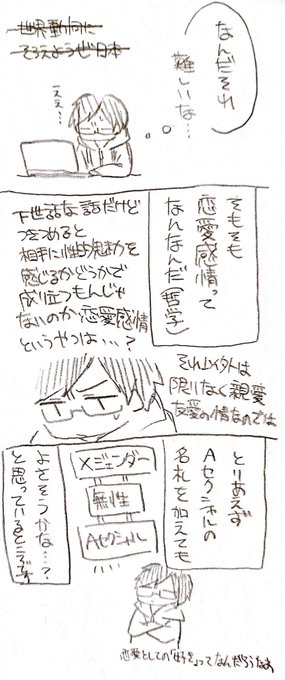 世界動向に
そろえようぜ日本
なんだそれ
難しいな…
ええ…
そもそも
恋愛感情って
なんなんだ(哲学)
下世話な話だけど
つきつめると
相手に性的魅力を
感じるかどうかで
成り立つもんじゃ
ないのか恋愛感情
というやつは…?
それ以外は
限りなく親愛
友愛の情なのでは
とりあえず
Aセクシャルの
名札を加えても
Xジェンダー
無性
Aセクシャル
よさそうかな…?
と思っているところです
恋愛としての「好き」ってなんだろうなぁ